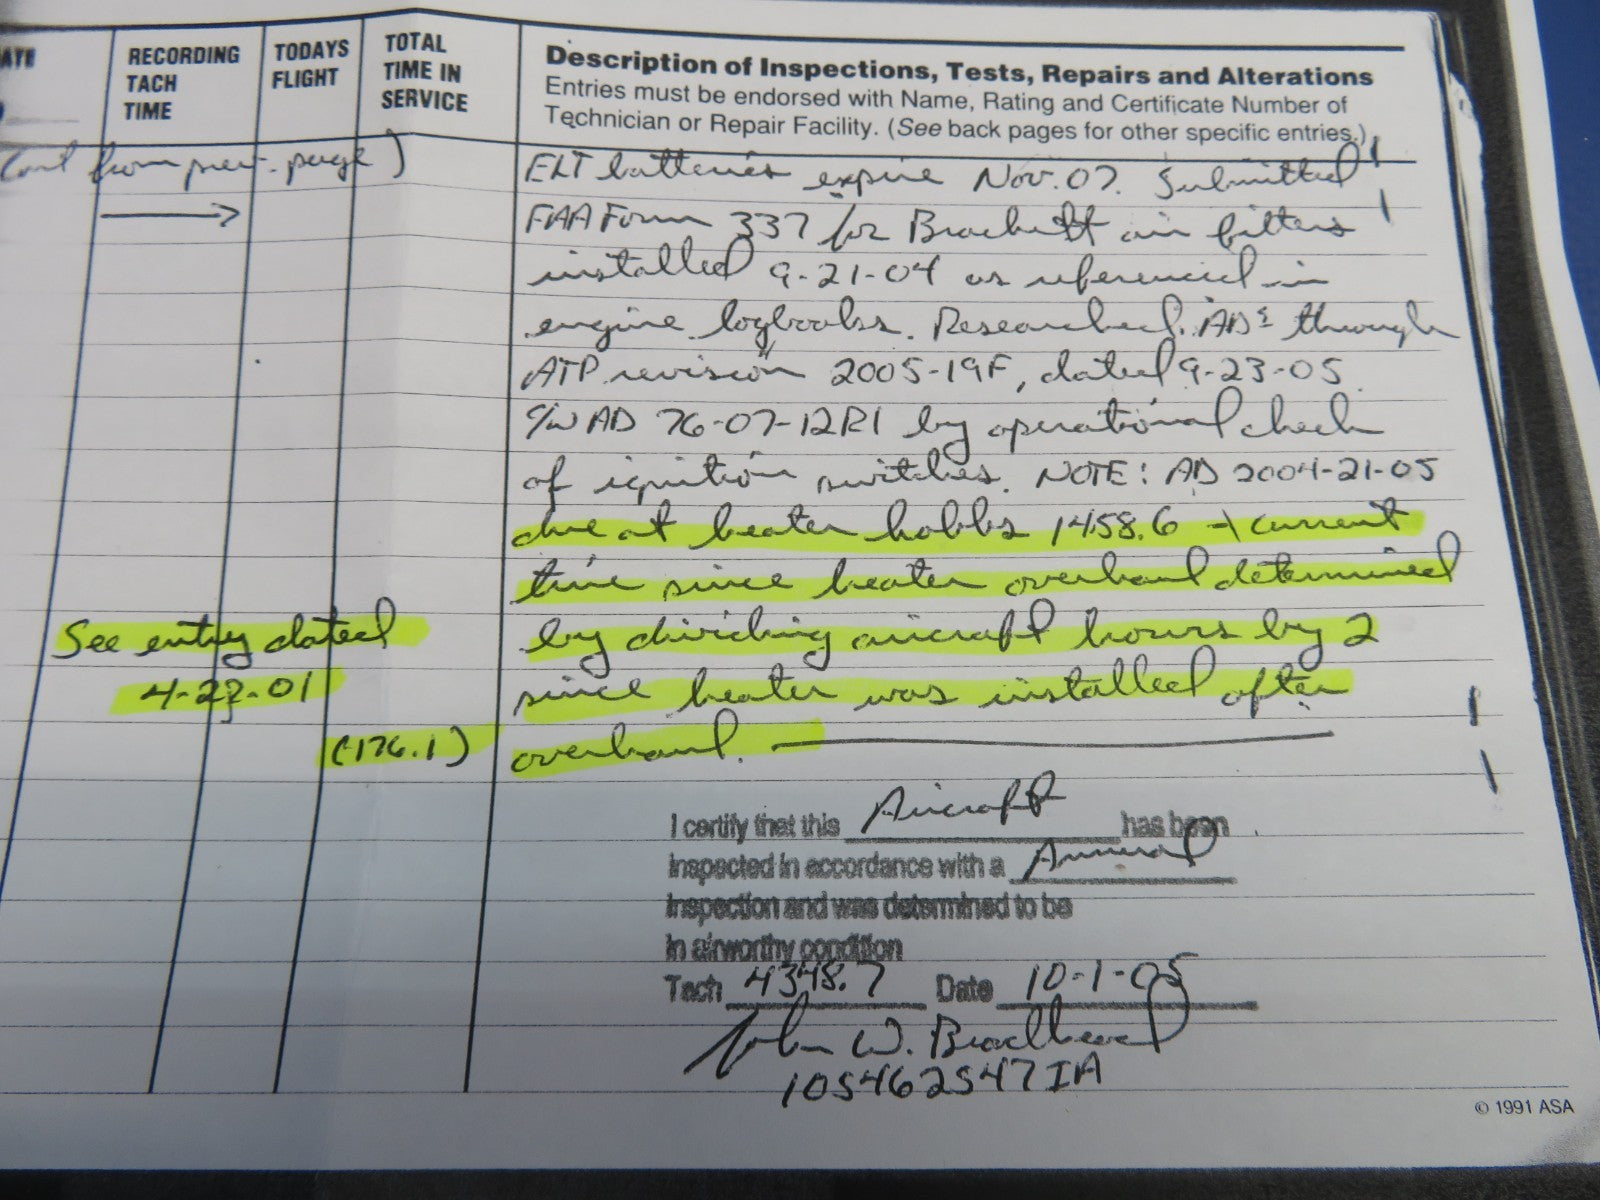 ATE
RECORDING TACH TIME
TODAYS FLIGHT
TOTAL TIME IN SERVICE
Description of Inspections, Tests, Repairs and Alterations
Entries must be endorsed with Name, Rating and Certificate Number of
Technician or Repair Facility. (See back pages for other specific entries.)
(Cont from prev. page)
ELT batteries expire Nov. 07. Submitted
FAA Form 337 for Brackett air filters
installed 9-21-04 as referenced in
engine logbooks. Researched AD's through
ATP revision 2005-19F, dated 9-23-05.
C/W AD 76-07-12R1 by operational check
of ignition switches. NOTE: AD 2004-21-05
due at heater hobbs 1458.6 → current
time since heater overhaul determined
See entry dated
by dividing aircraft hours by 2
4-22-01
since heater was installed after
(176.1)
overhaul.
I certify that this Aircraft has been
inspected in accordance with a Annual
inspection and was determined to be
in airworthy condition
Tach 4348.7 Date 10-1-05
John W. Broadhead
105462547IA
© 1991 ASA